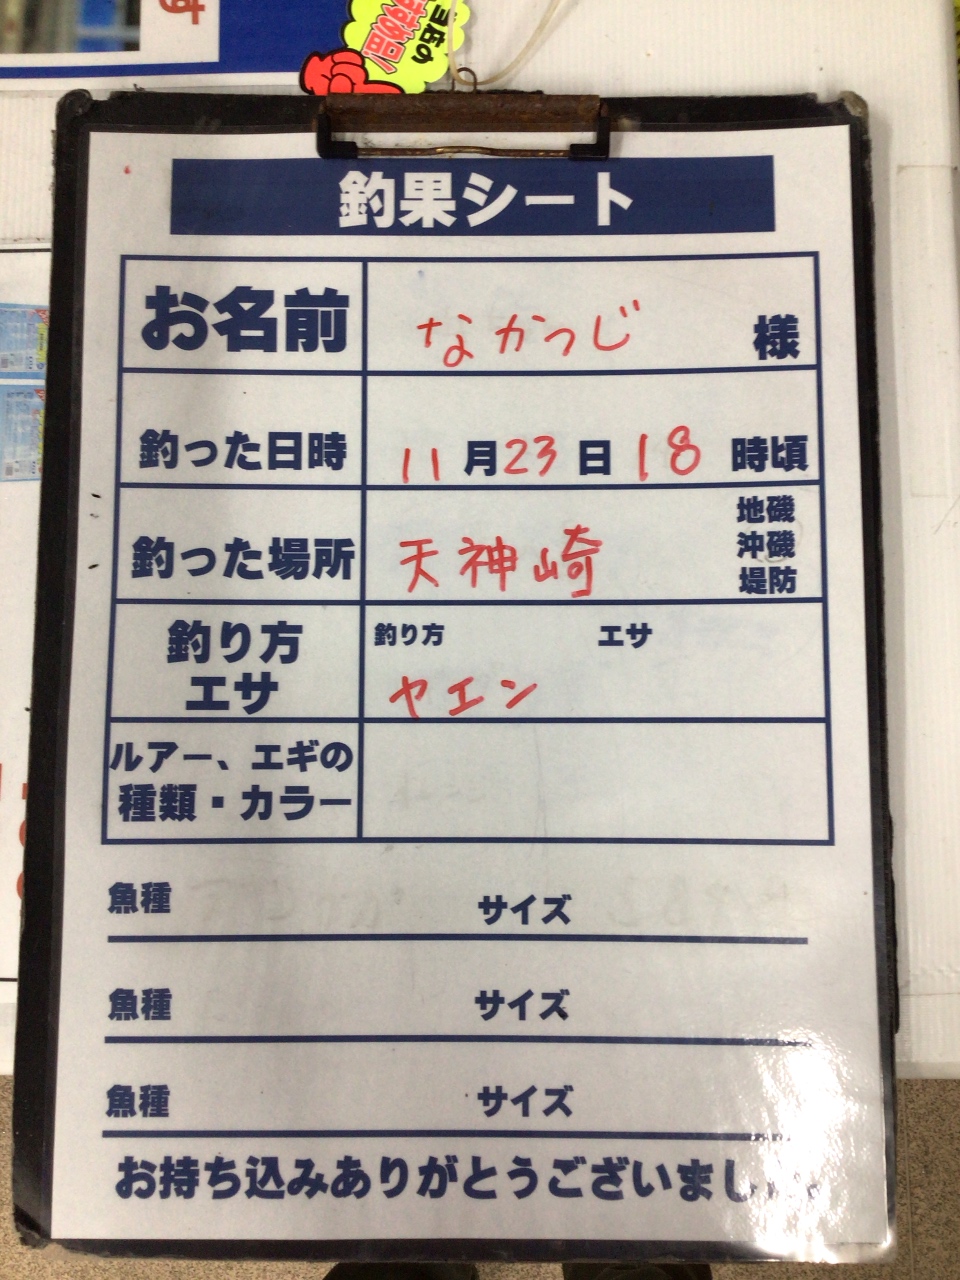 す
当店の
おすすめ品!
釣果シート
お名前 なかつじ 様
釣った日時 11月23日18時頃
釣った場所 天神崎 地磯
沖磯
堤防
釣り方
エサ
釣り方 エサ
ヤエン
ルアー、エギの
種類・カラー
魚種 サイズ
魚種 サイズ
魚種 サイズ
お持ち込みありがとうございまし